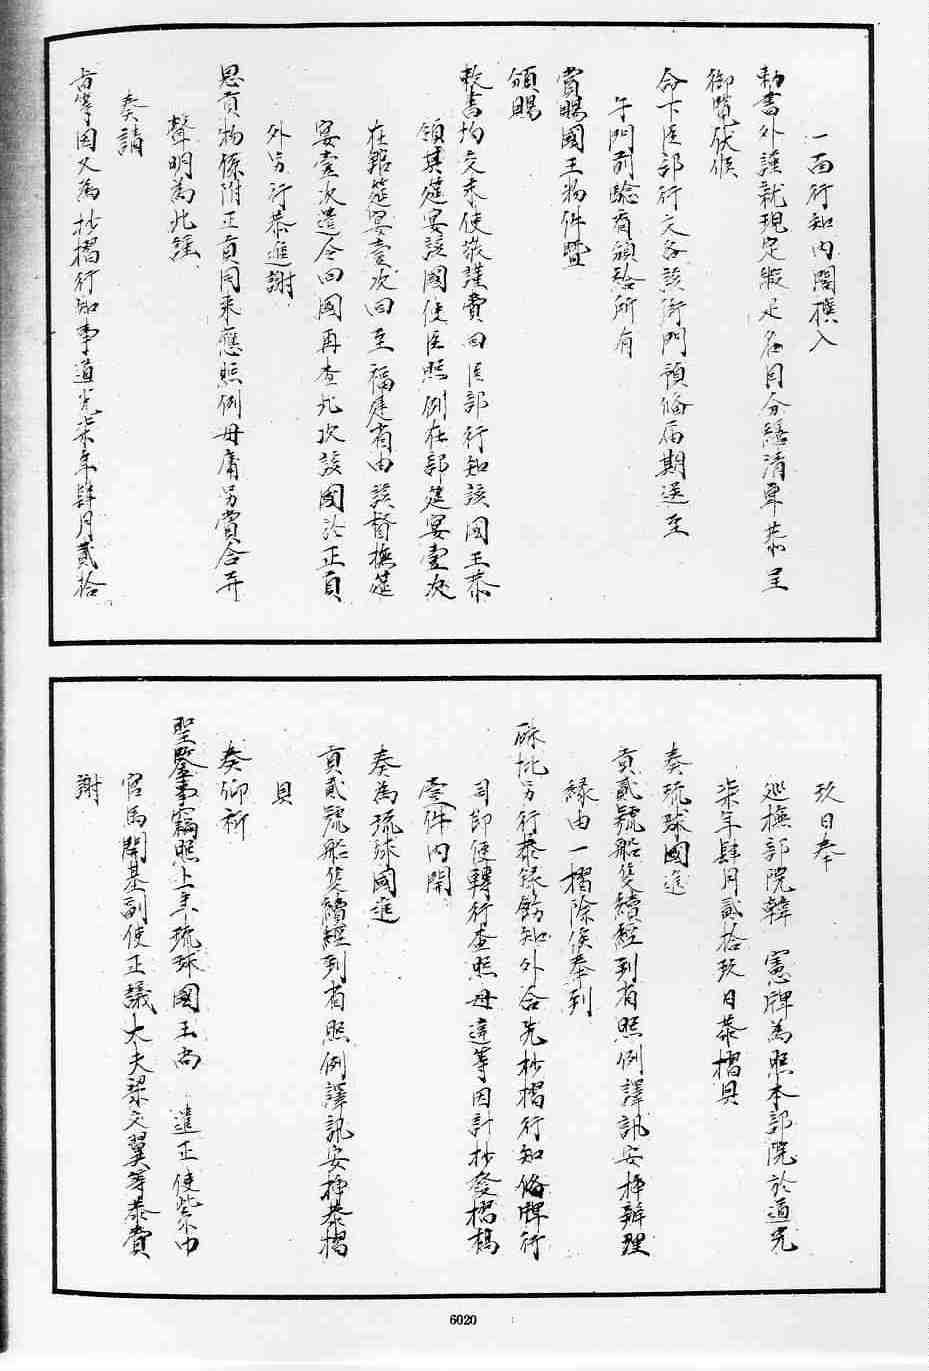 一面行知內閣撰入
勅書外謹就現定緞疋名目分繕清單恭呈
御覽伏候
命下臣部行文各該衙門預俻届期送至
午門前驗看頒給所有
賞賜國王物件暨
頒賜
敕書均交来使敬謹賫回臣部行知該國王恭
領其筵宴該國使臣照例在部筵宴壹次
在館筵宴壹次回至福建省由該督撫筵
宴壹次遣令回國再查此次該國於正貢
外另行恭進謝
恩貢物係附正貢同来應照例毋庸另賞合并
聲明為此謹
奏請
旨等因又為抄摺行知事道光柒年肆月貳拾
玖日奉
巡撫部院韓 憲牌為照本部院於道光
柒年肆月貳拾玖日恭摺具
奏琉球國進
貢貳號船隻續經到省照例譯訊安挿辦理
緣由一摺除俟奉到
硃批另行恭錄飭知外合先抄摺行知俻牌行
司即便轉行查照毋違等因計抄發摺稿
壹件內開
奏為琉球國進
貢貳號船隻續經到省照例譯訊安挿恭摺
具
奏仰祈
聖鑒事竊照上年琉球國王尚 遣正使紫巾
官馬開基副使正議大夫梁文翼等恭賫
謝
6020